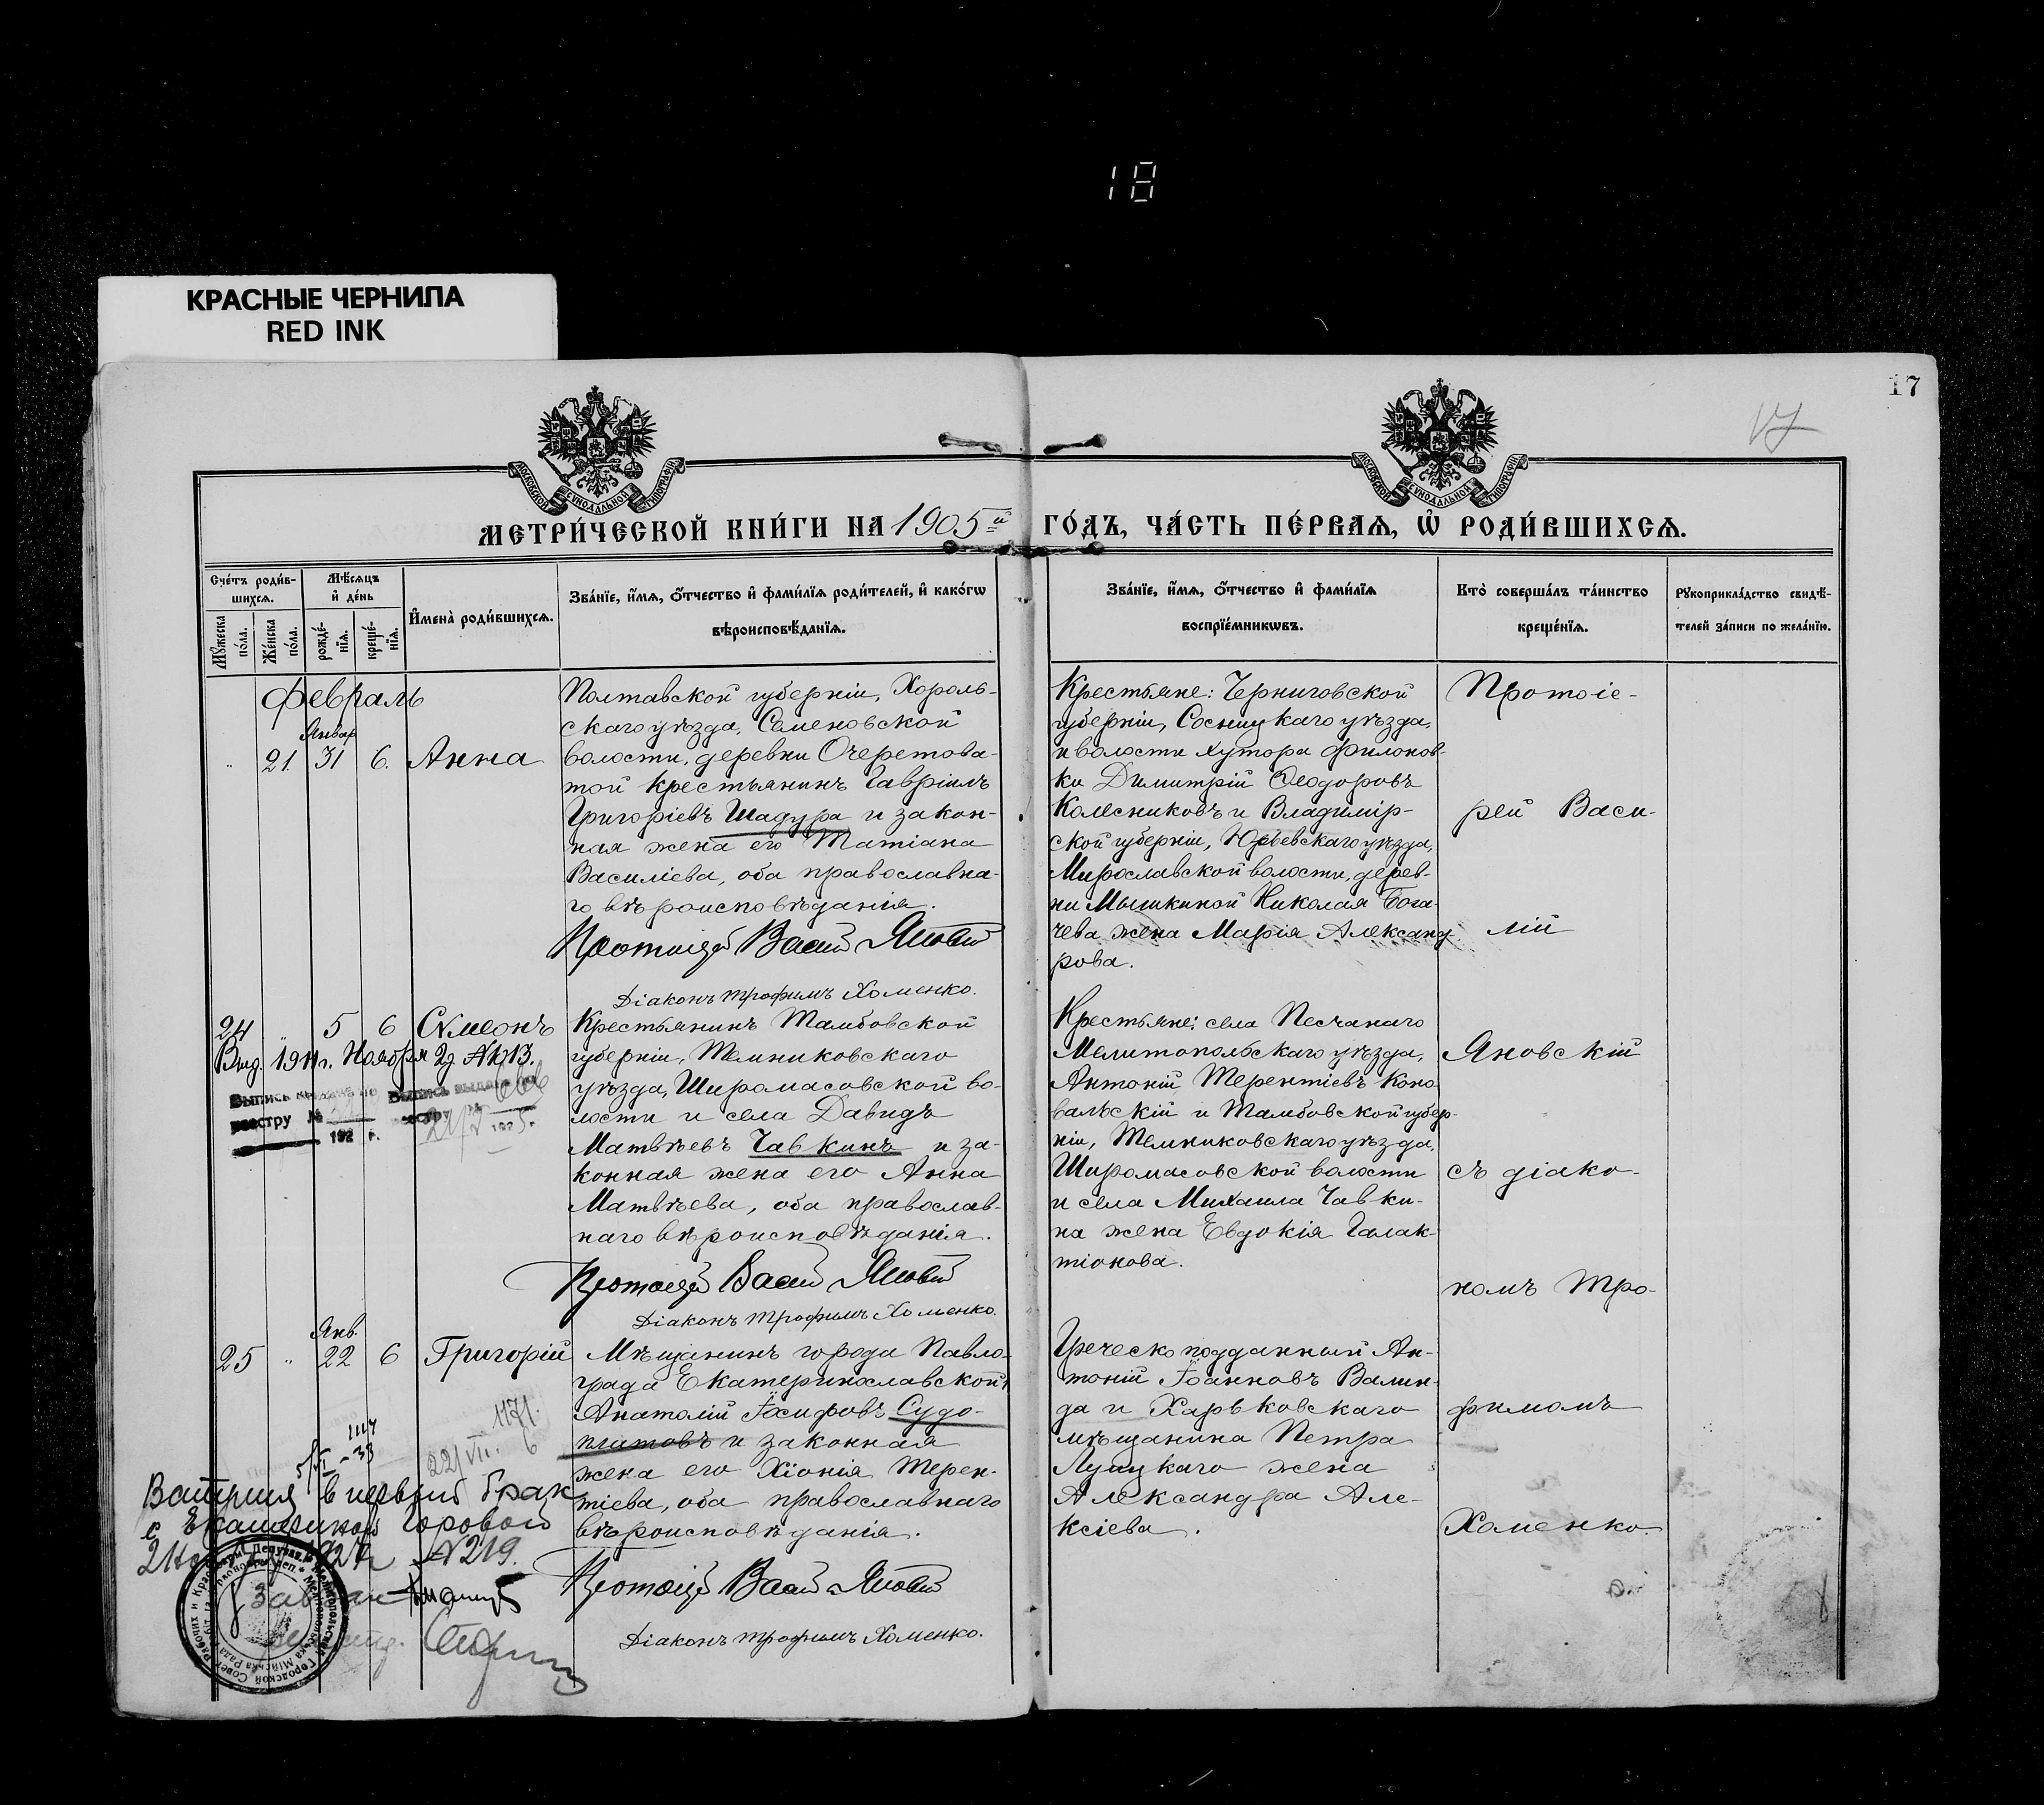 18
КРАСНЫЕ ЧЕРНИЛА
RED INK
17
17
МОСКОВСКОЙ СѴНОДАЛЬНОЙ ТИПОГРАФІИ
МОСКОВСКОЙ СѴНОДАЛЬНОЙ ТИПОГРАФІИ
МЕТРИ́ЧЕСКОЙ КНИ́ГИ НА 1905й ГО́ДЪ, ЧА́СТЬ ПЕ́РВАѦ, Ѡ РОДИ́ВШИХСѦ.
Сче́тъ роди́в-
шихсѧ.
Мꙋжеска по́ла.
Же́нска по́ла.
Мѣ́сѧцъ
и҆ де́нь
рожде́-
нїѧ.
креще́-
нїѧ.
И҆мена̀ роди́вшихсѧ.
Зва́нїе, и҆́мѧ, ѻ҆́тчество и҆ фами́лїѧ роди́телей, и҆ како́гѡ
вѣроисповѣ́данїѧ.
Зва́нїе, и҆́мѧ, ѻ҆́тчество и҆ фами́лїѧ
воспрїе́мникѡвъ.
Кто̀ соверша́лъ та́инство
креще́нїѧ.
Рꙋкоприкла́дство свидѣ́-
телей за́писи по жела́нїю.
Февраль
Январ
" 21. 31 6. Анна
Полтавской губерніи, Хороль-
скаго уѣзда, Семеновской
волости, деревни Очеретова-
той крестьянинъ Гавріилъ
Григоріевъ Шадура и закон-
ная жена его Татіана
Василіева, оба православна-
го вѣроисповѣданія.
Протоіерей Василій Яновскій
Діаконъ Трофимъ Хоменко.
Крестьяне: Черниговской
губерніи, Сосницкаго уѣзда,
и волости хутора Филонов-
ки Димитрій Ѳеодоровъ
Колесниковъ и Владимір-
ской губерніи, Юрьевскаго уѣзда,
Мирославской волости, дерев-
ни Мышкиной Николая Бога-
чева жена Марія Александ-
рова.
Протоіе-
рей Васи-
лій
24 " 5 6 Сѷмеонъ
Выд. 1911 г. Ноября 29 № 1213.
Выпись выдана по
реестру №
192 г.
Выпись выдана по
реестру №
1925 г.
Крестьянинъ Тамбовской
губерніи, Темниковскаго
уѣзда, Широмасовской во-
лости и села Давидъ
Матвѣевъ Чавкинъ и за-
конная жена его Анна
Матвѣева, оба православ-
наго вѣроисповѣданія.
Протоіерей Василій Яновскій
Діаконъ Трофимъ Хоменко.
Крестьяне: села Песчанаго
Мелитопольскаго уѣзда,
Антоній Терентіевъ Коно-
вальскій и Тамбовской губер-
ніи, Темниковскаго уѣзда,
Широмасовской волости
и села Михаила Чавки-
на жена Евдокія Галак-
тіонова.
Яновскій
съ діако-
номъ Тро-
Янв.
25 " 22 6 Григорій
1171.
22/VII. 6
Мѣщанинъ города Павло-
града Екатеринославской г.
Анатолій Іосифовъ Судо-
платовъ и законная
жена его Хіонія Терен-
тіева, оба православнаго
вѣроисповѣданія.
Протоіерей Василій Яновскій
Діаконъ Трофимъ Хоменко.
Греческоподданный Ан-
тоній Іоанновъ Валин-
да и Харьковскаго
мѣщанина Петра
Луцкаго жена
Александра Але-
ксіева.
фимомъ
Хоменко.
в первый брак
с Екатериной Горовой
№ 219.